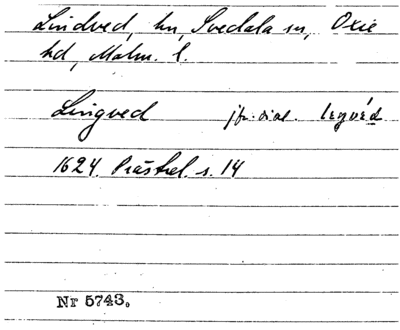 Lindved, hn, Svedala sn, Oxie
hd, Malm. l.
Lingved jfr. dial. leŋvéd
1624 Prästrel. s. 14
Nr 5743.